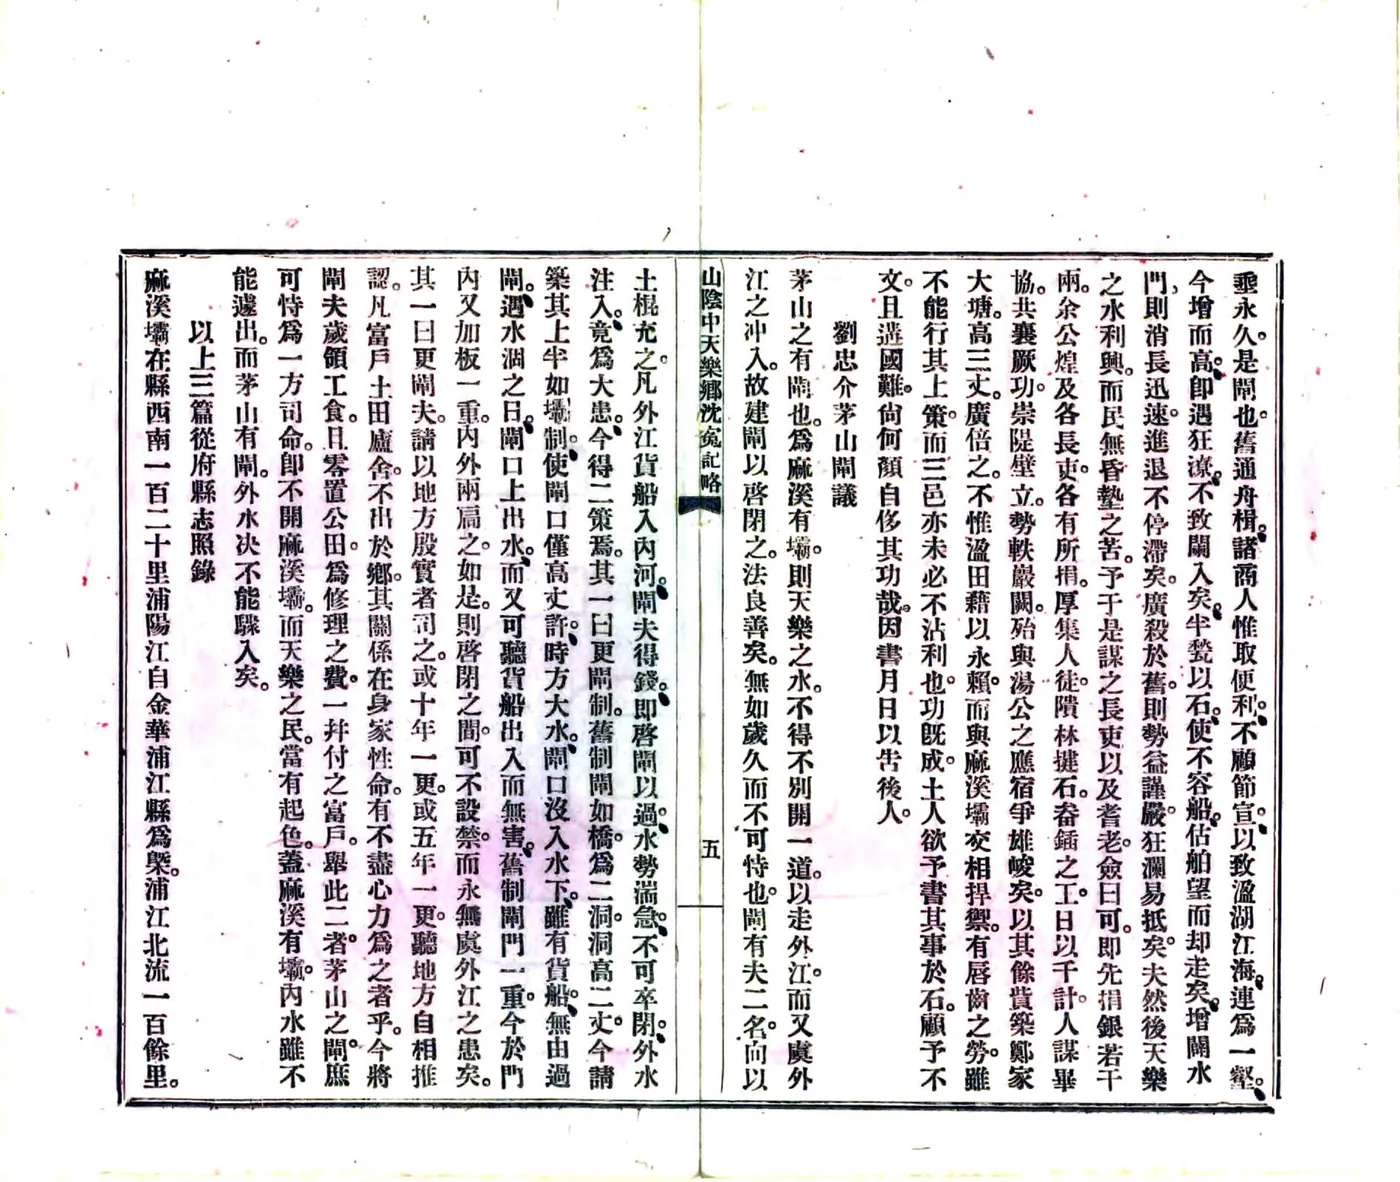 垂永久。是閘也。舊通舟楫。諸商人惟取便利。不顧節宣。以致溢湖江海。連爲一壑。
今增而高。卽遇狂潦。不致闌入矣。半甃以石。使不容船。估舶望而却走矣。增闢水
門。則消長迅速。進退不停滯矣。廣殺於舊。則勢益謹嚴。狂瀾易抵矣。夫然後天樂
之水利興。而民無昏墊之苦。予于是謀之長吏以及耆老。僉曰可。卽先捐銀若干
兩。余公煌及各長吏。各有所捐。厚集人徒。隤林揵石。畚鍤之工。日以千計。人謀畢
協。共襄厥功。崇隄壁立。勢軼巖闕。殆與湯公之應宿爭雄峻矣。以其餘貲築鄭家
大塘。高三丈。廣倍之。不惟溢田藉以永賴。而與麻溪壩交相捍禦。有唇齒之勞。雖
不能行其上策。而三邑亦未必不沾利也。功旣成。土人欲予書其事於石。顧予不
文。且遘國難。尙何顏自侈其功哉。因書月日以吿後人。
劉忠介茅山閘議
茅山之有閘也。爲麻溪有壩。則天樂之水。不得不別開一道。以走外江。而又虞外
江之冲入。故建閘以啓閉之。法良善矣。無如歲久而不可恃也。閘有夫二名。向以
山陰中天樂鄉沈寃記略
五
土棍充之。凡外江貨船入內河。閘夫得錢。即啓閘以過。水勢湍急。不可卒閉。外水
注入。竟爲大患。今得二策焉。其一曰更閘制。舊制閘如橋。爲二洞。洞高二丈。今請
築其上半如壩制。使閘口僅高丈許。時方大水。閘口沒入水下。雖有貨船。無由過
閘。遇水涸之日。閘口上出水。而又可聽貨船出入而無害。舊制閘門一重。今於門
內又加板一重。內外兩扃之。如是。則啓閉之間。可不設禁。而永無虞外江之患矣。
其一曰更閘夫。請以地方殷實者司之。或十年一更。或五年一更。聽地方自相推
認。凡富戶土田廬舍。不出於鄉。其關係在身家性命。有不盡心力爲之者乎。今將
閘夫歲領工食。且零置公田。爲修理之費。一幷付之富戶。舉此二者。茅山之閘。庶
可恃爲一方司命。卽不開麻溪壩。而天樂之民。當有起色。蓋麻溪有壩。內水雖不
能遽出。而茅山有閘。外水决不能驟入矣。
以上三篇從府縣志照錄
麻溪壩在縣西南一百二十里浦陽江自金華浦江縣爲槩。浦江北流一百餘里。